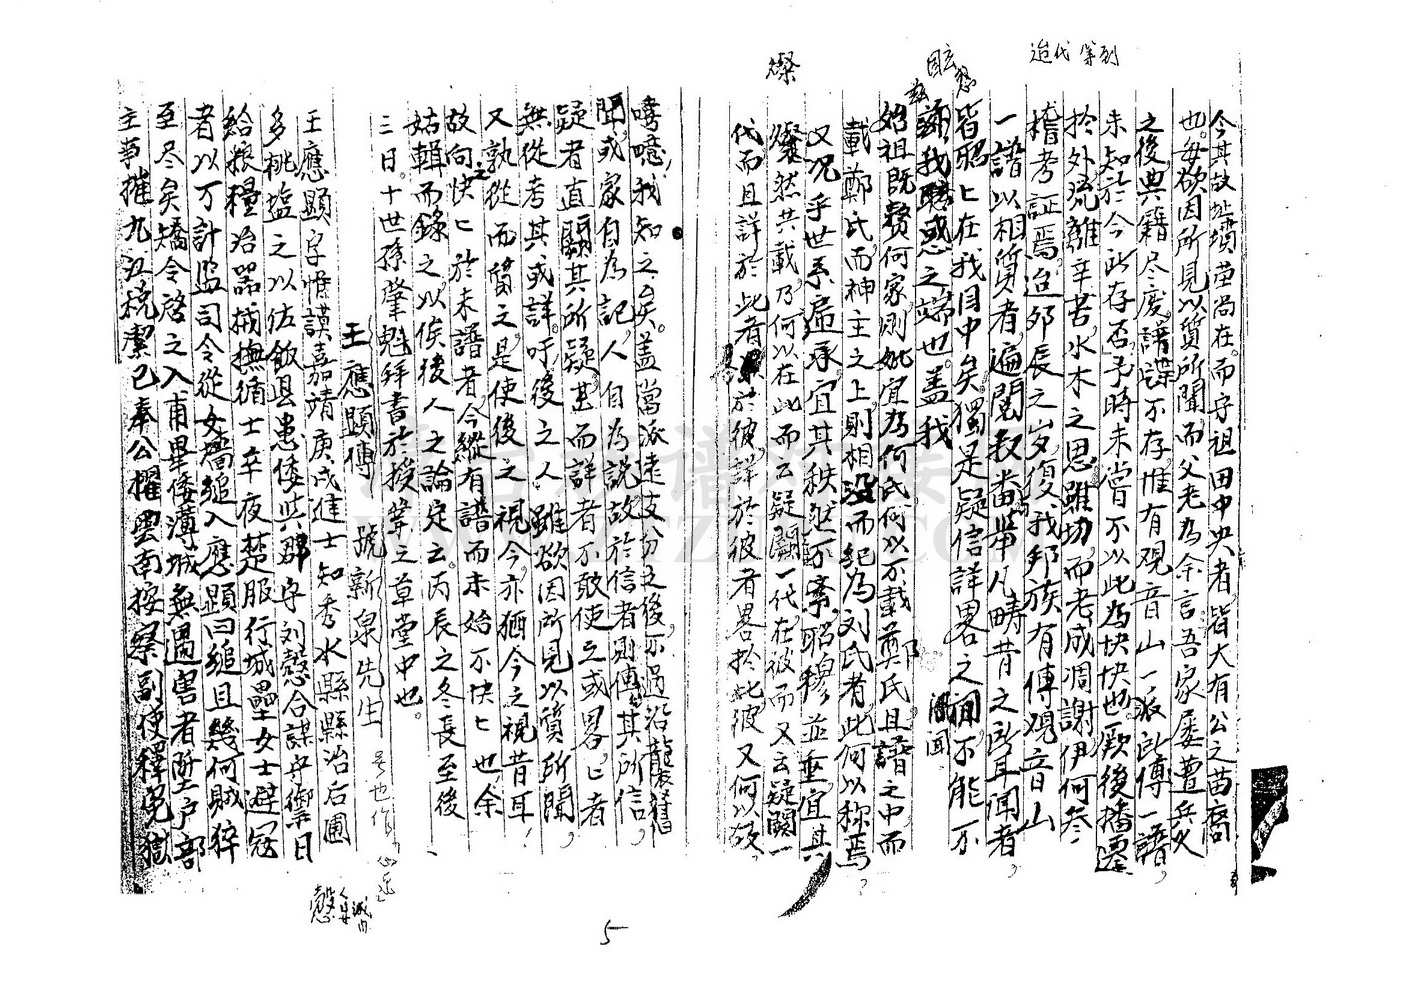 今其故址墳塋尚在而守祖田中央者皆大有公之苗裔
也毋欲因所見以質所聞而父老為余言吾家屢曹兵火
之後典籍尽廢譜諜不存惟有观音山一派此傳一譜
未知於今此存否予時未嘗不以此為怏怏也厥後播遷
於外流離辛苦水木之思雖切而老成凋謝伊何叅
稽考証焉迨夘辰之歲復我邦族有傳观音山
一譜以相質者遍閱数番举凡疇昔之所耳聞者
皆昭匕在我目中矣獨是疑信詳畧之間不能不
滋我眩惑之端也盖我
始祖既贅何家則妣宜為何氏何以不載鄭氏且譜之中而
載鄭氏而神主之上則相没而纪為刘氏者此何以称焉
又况乎世系遍承宜其秩然不紊昭穆並垂宜其
燦然共載乃何以在此而云疑闕一代在彼而又云疑闕一
代而且詳於此者畧於彼詳於彼者畧於此彼又何以故
嘻噫我知之矣盖當派逺支分之後不過沿襲舊
聞或家自為記人自為說故於信者則傳其所信
疑者直闕其所疑甚而詳者不敢使之或畧匕者
無從考其或詳吁後之人雖欲因所見以質所聞
又孰從而質之是使後之視今亦猶今之視昔耳
故向之怏匕於未譜者今縱有譜而未始不怏匕也余
姑輯而錄之以俟後人之論定云丙辰之冬長至後
三日十世孫肇魁拜書於授業之草堂中也
王應顕傳 號新泉先生 号也作心远
王應顕字惟謨嘉靖庚戍進士知秀水縣縣治后圃
多桃塩之以佐飯县患倭与郡守刘愨合謀守禦日
給粮糧治器械撫循士卒夜楚服行城壘女士避寇
者以万計监司令從女墻縋入應顕曰縋且幾何賊猝
至尽矣矯令啓之入甫畢倭薄城無遇害者陞户部
主事摧九江税潔己奉公擢雲南按察副使釋冤獄
迨代等到
眩惑
滋
燦
間聞
愨
5